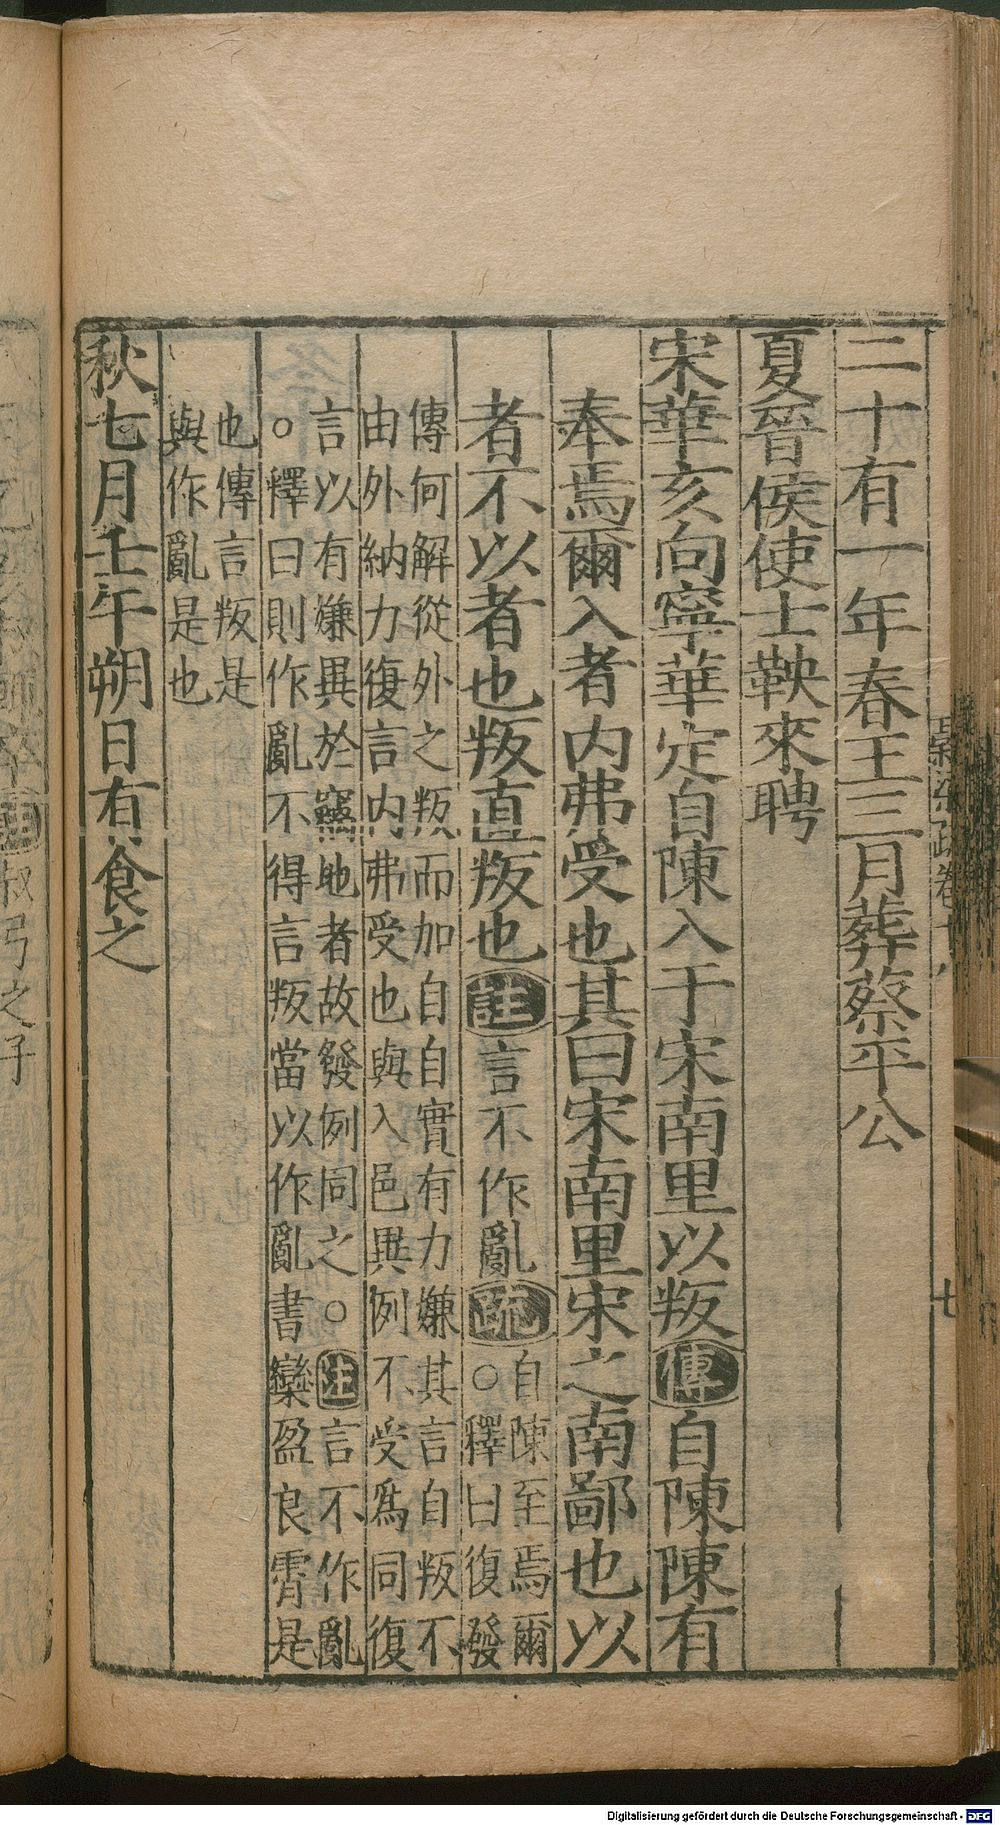 穀梁疏卷十八 七
二十有一年春王三月葬蔡平公
夏晉侯使士鞅來聘
宋華亥向寧華定自陳入于宋南里以叛傳自陳陳有
奉焉爾入者内弗受也其曰宋南里宋之南鄙也以
者不以者也叛直叛也註言不作亂疏自陳至焉爾
○釋曰復發
傳何解從外之叛而加自自實有力嫌其言自叛不
由外納力復言内弗受也與入邑異例不受爲同復
言以有嫌異於竊地者故發例同之○注言不作亂
○釋曰則作亂不得言叛當以作亂書欒盈良霄是
也傳言叛是
與作亂是也
秋七月壬午朔日有食之
叔弓之子
Digitalisierung gefördert durch die Deutsche Forschungsgemeinschaft - DFG